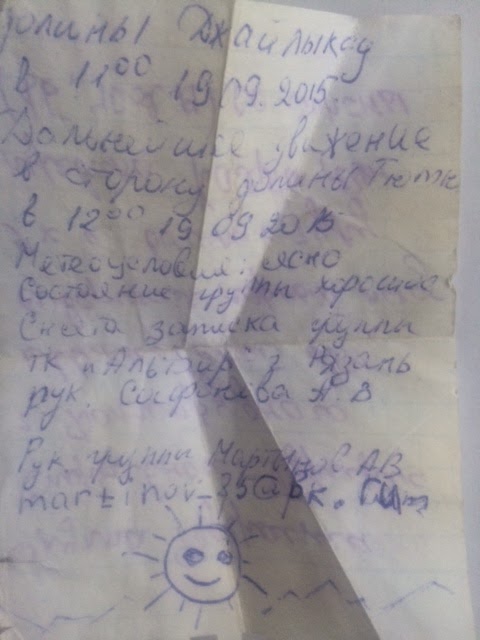 долины Джайлыксу
в 11⁰⁰ 19.09.2015
Дальнейшее движение
в сторону долины Тютю
в 12⁰⁰ 19 09 2015
Метеоусловия: ясно
Состояние группы хорошее
Снята записка группы
тк "Альтаир" г Рязань
рук. Сафонова А. В
Рук. группы Мартынов АВ